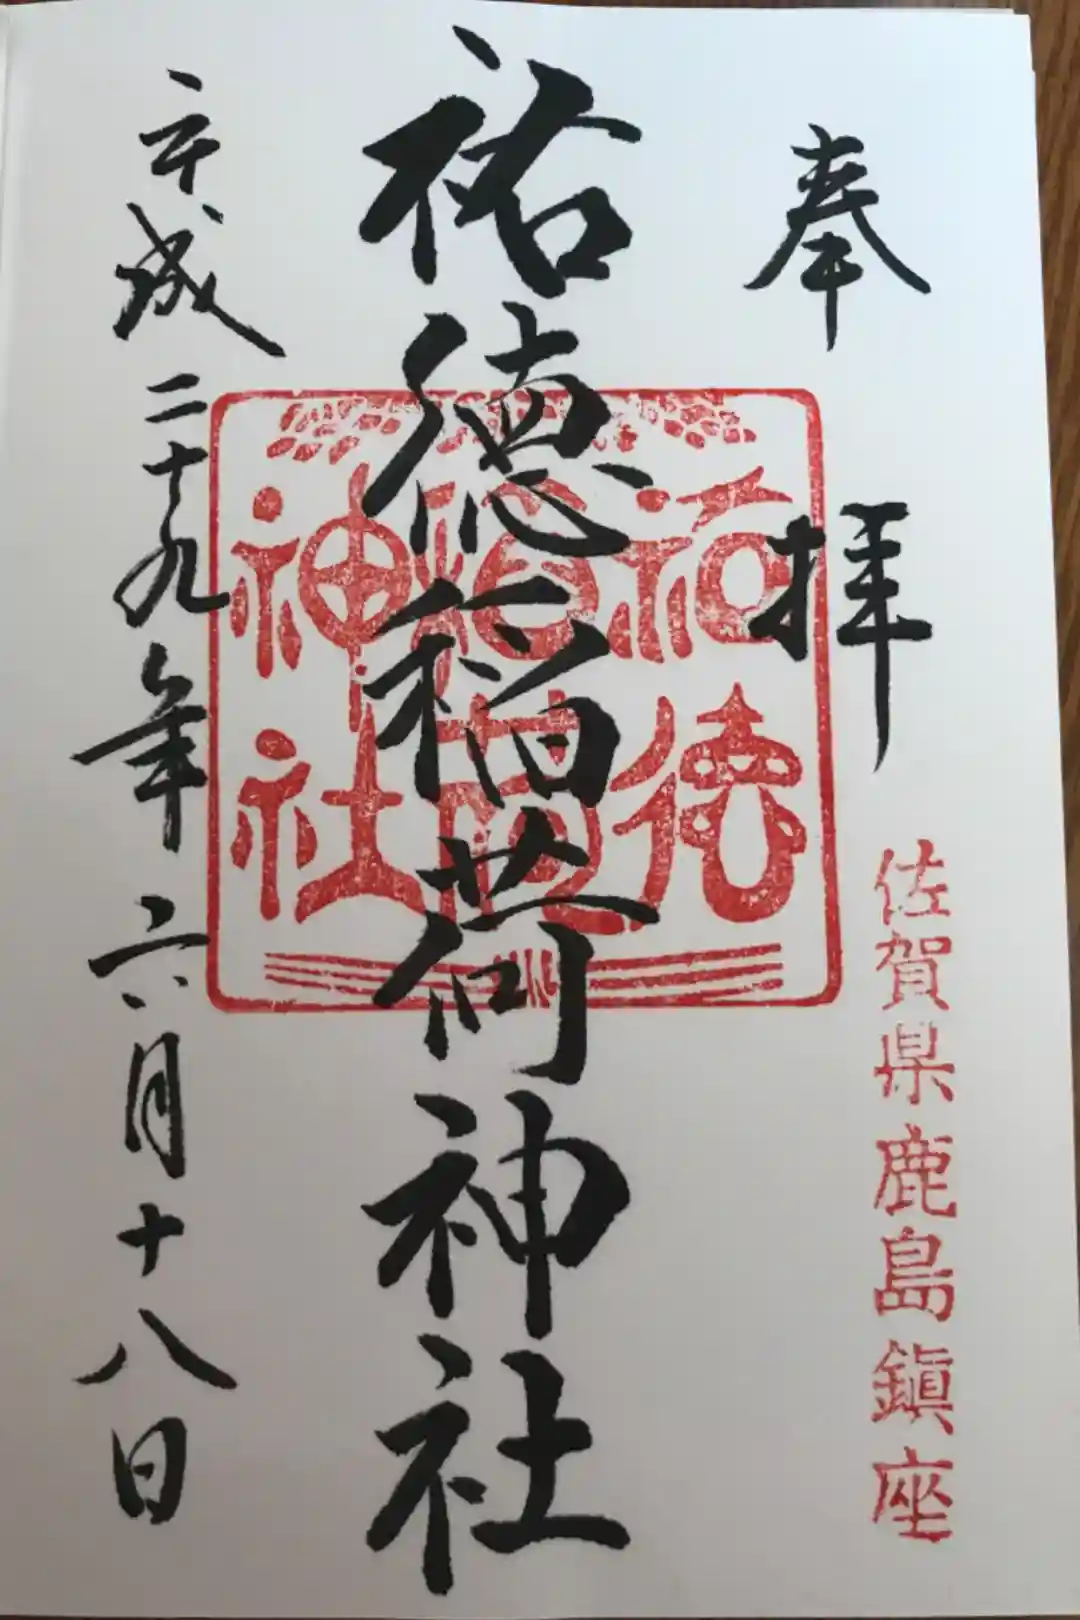 奉拝
佐賀県鹿島鎮座
祐徳稲荷神社
祐徳
稲荷
神社
平成二十九年六月十八日